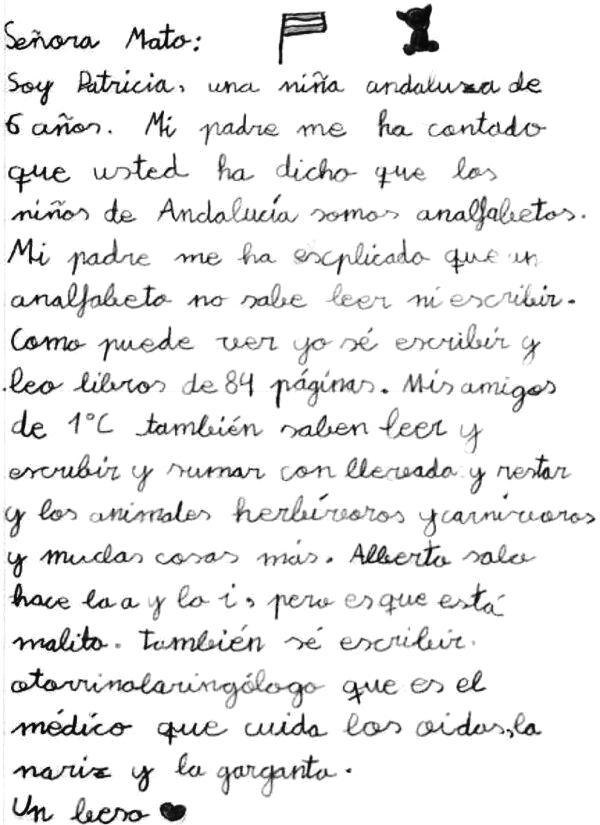 Señora Mato:
Soy Patricia, una niña andaluza de
6 años. Mi padre me ha contado
que usted ha dicho que los
niños de Andalucía somos analfabetos.
Mi padre me ha escplicado que un
analfabeto no sabe leer ni escribir.
Como puede ver yo sé escribir y
leo libros de 84 páginas. Mis amigos
de 1ºC también saben leer y
escribir y sumar con llevada y restar
y los animales herbívoros y carnívoros
y muchas cosas más. Alberto solo
hace la a y la i, pero es que está
malito. También sé escribir
otorrinolaringólogo que es el
médico que cuida los oidos, la
nariz y la garganta.
Un beso